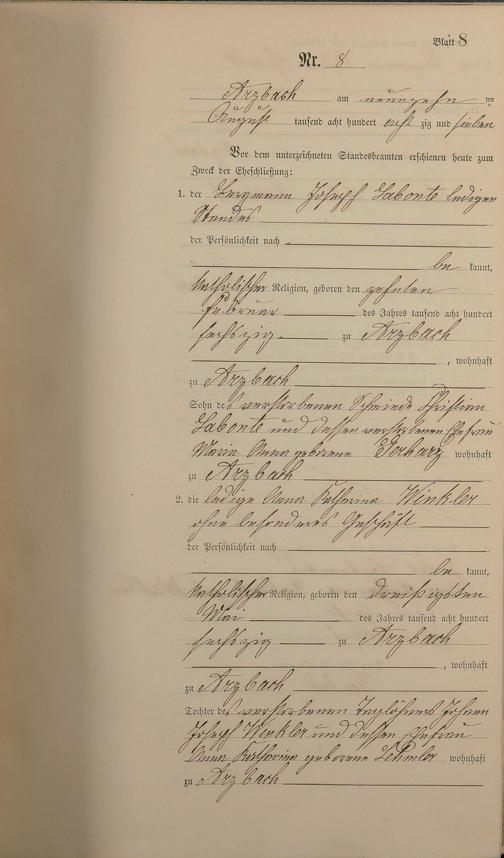 Blatt 8
Nr. 8
Arzbach am neunzehn ten
August tausend acht hundert acht zig und sieben
Vor dem unterzeichneten Standesbeamten erschienen heute zum
Zweck der Eheschließung:
1. der Bergmann Joseph Labonte ledigen
Standes
der Persönlichkeit nach
be kannt,
katholischer Religion, geboren den zehnten
Februar des Jahres tausend acht hundert
sechszig zu Arzbach
, wohnhaft
zu Arzbach
Sohn des verstorbenen Christian
Labonte und dessen verstorbenen Ehefrau
Maria Anna geborene Gerharz wohnhaft
zu Arzbach
2. die ledige Anna Katharina Winkler
ohne besonderes Geschäft
der Persönlichkeit nach
be kannt,
katholischer Religion, geboren den dreißigsten
Mai des Jahres tausend acht hundert
sechszig zu Arzbach
, wohnhaft
zu Arzbach
Tochter des verstorbenen Taglöhners Johann
Joseph Winkler und dessen Ehefrau
Anna Katharina geborene wohnhaft
zu Arzbach